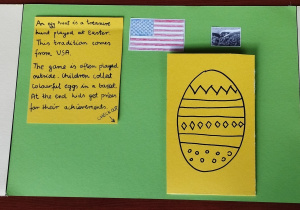 An egg hunt is a treasure
hunt played at Easter.
This tradition comes
from USA.
The game is often played
outside. Children collect
colourful eggs in a basket.
At the end kids get prizes
for their achievements.